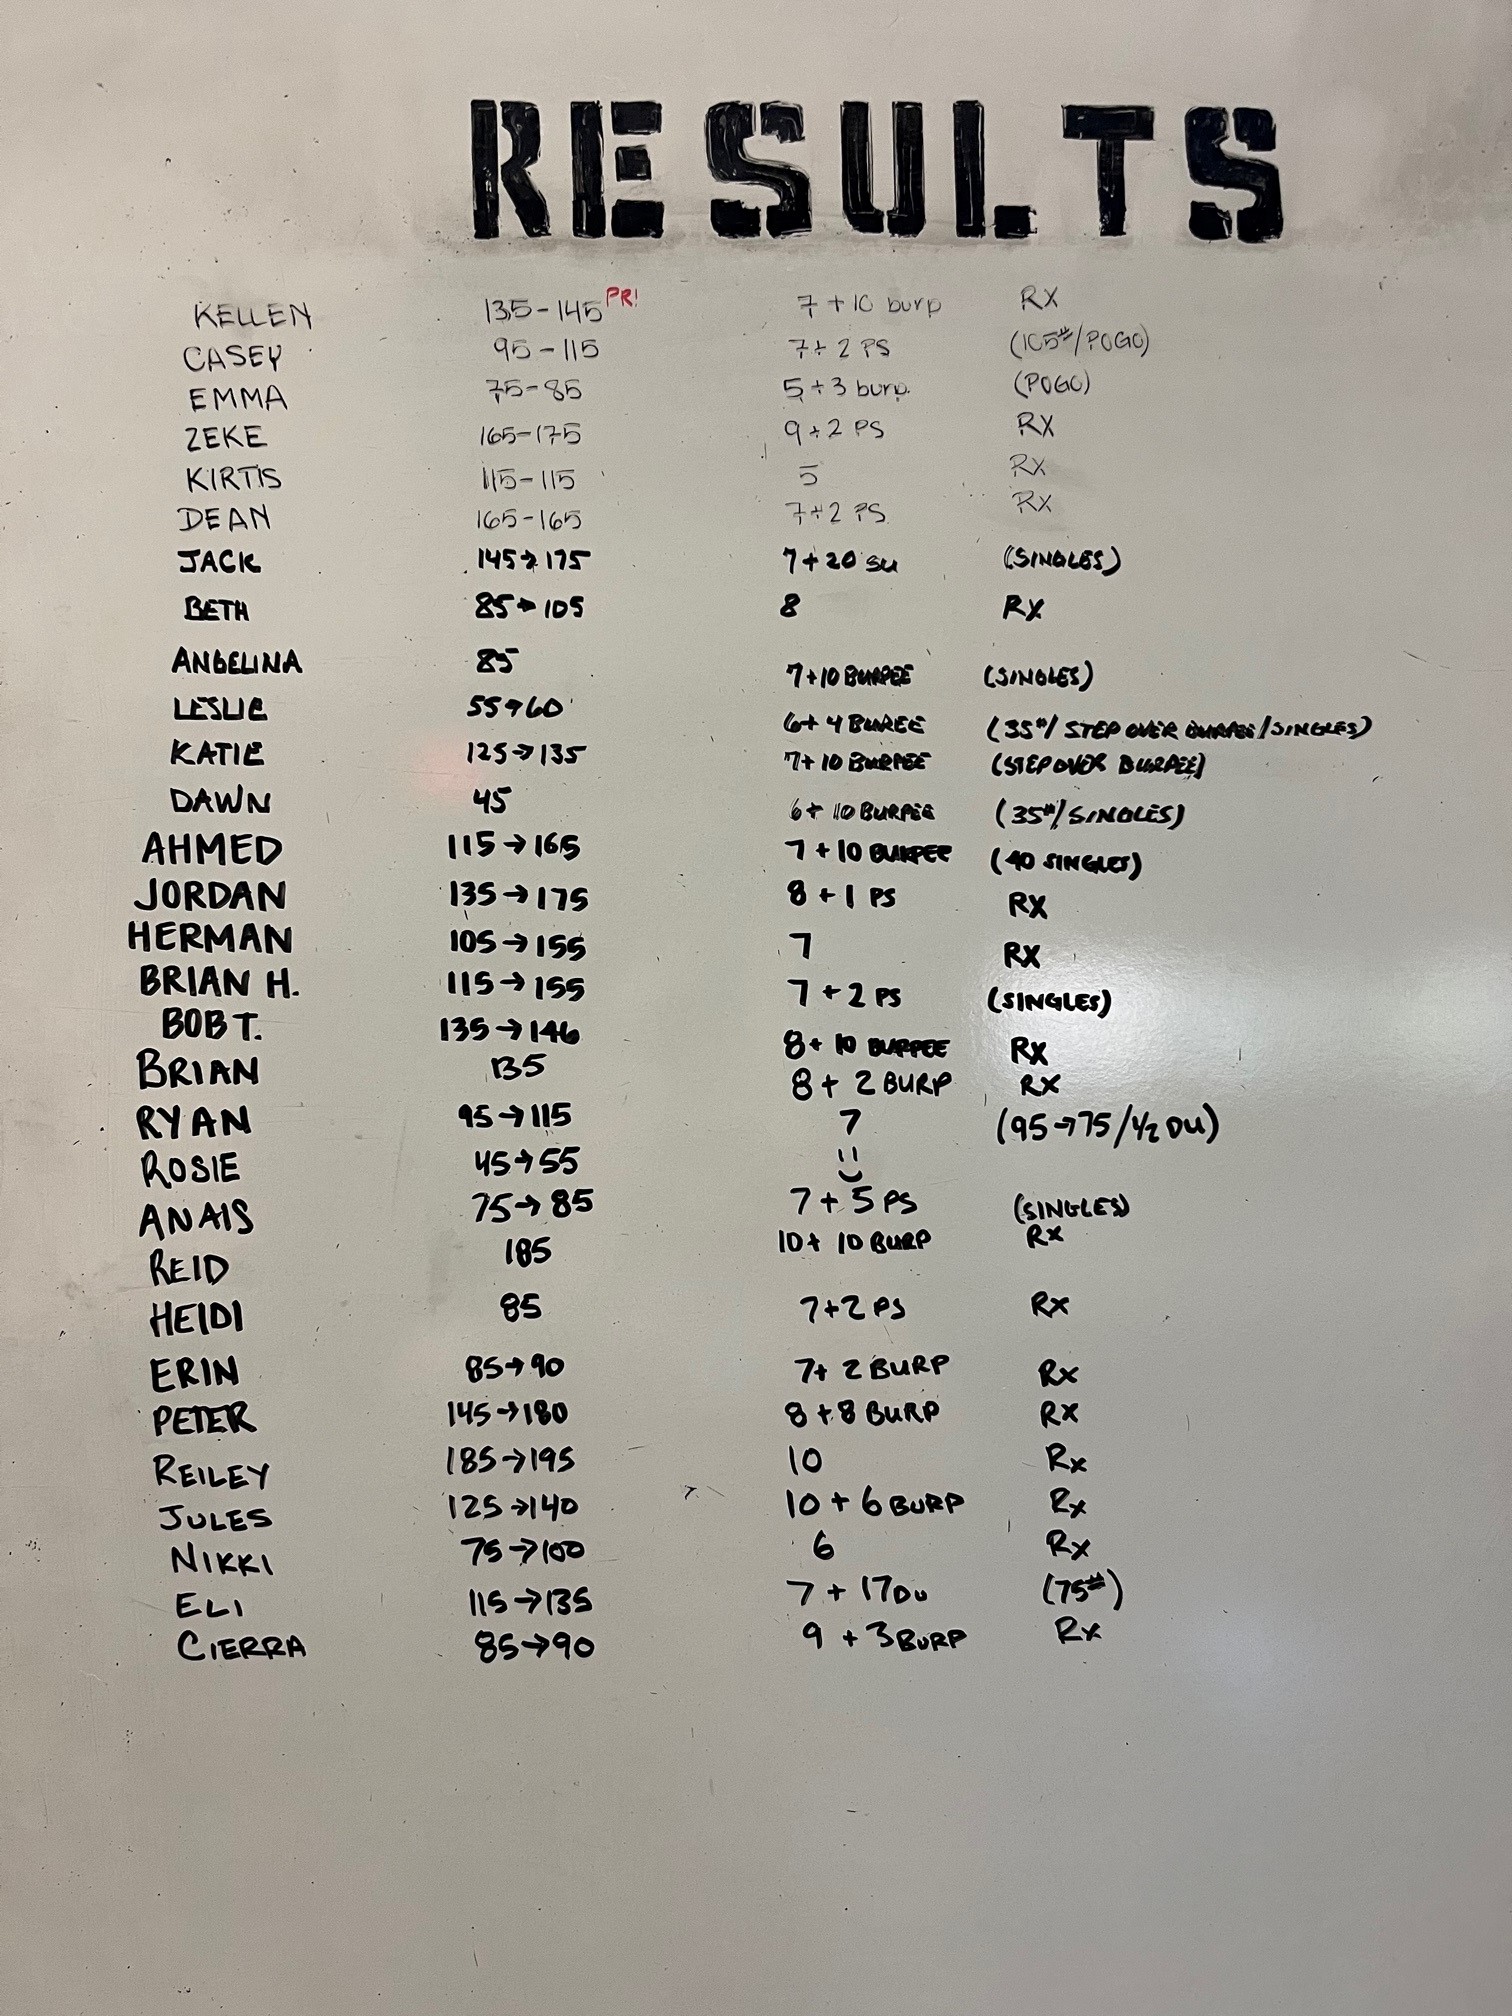 RESULTS
KELLEN 135-145 PR! 7+10 burp RX
CASEY 95-115 7+2 PS (105#/POGO)
EMMA 75-85 5+3 burp. (POGO)
ZEKE 165-175 9+2 PS RX
KIRTIS 115-115 5 RX
DEAN 165-165 7+2 PS RX
JACK 145→175 7+20 SU (SINGLES)
BETH 85→105 8 RX
ANGELINA 85 7+10 BURPEE (SINGLES)
LESLIE 55→60 6+4 BUREE (35#/STEP OVER BURPEE/SINGLES)
KATIE 125→135 7+10 BURPEE (STEP OVER BURPEE)
DAWN 45 6+10 BURPEE (35#/SINGLES)
AHMED 115→165 7+10 BURPEE (40 SINGLES)
JORDAN 135→175 8+1 PS RX
HERMAN 105→155 7 RX
BRIAN H. 115→155 7+2 PS (SINGLES)
BOB T. 135→146 8+10 BURPEE RX
BRIAN 135 8+2 BURP RX
RYAN 95→115 7 (95→75/1/2 DU)
ROSIE 45→55
ANAIS 75→85 7+5 PS (SINGLES)
REID 185 10+10 BURP RX
HEIDI 85 7+2 PS RX
ERIN 85→90 7+2 BURP RX
PETER 145→180 8+8 BURP RX
REILEY 185→195 10 Rx
JULES 125→140 10+6 BURP Rx
NIKKI 75→100 6 Rx
ELI 115→135 7+17DU (75#)
CIERRA 85→90 9+3 BURP Rx